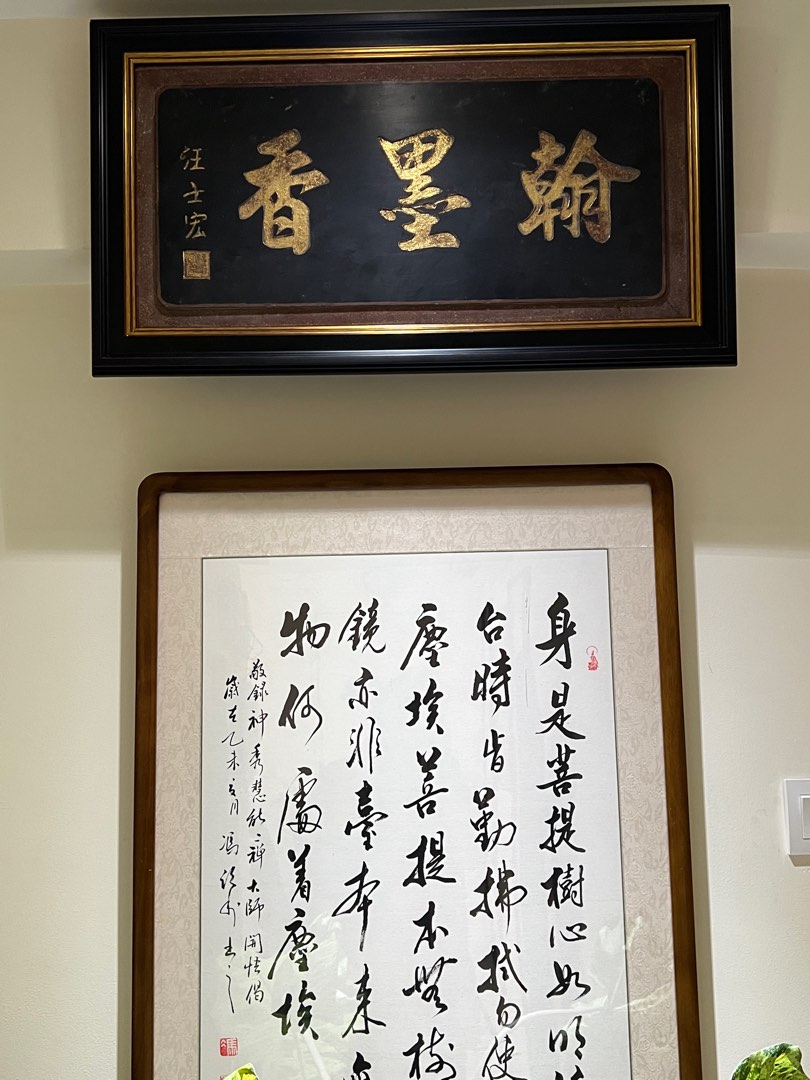 翰墨香
汪士宏
身是菩提樹心如明
台時旹勤拂拭勿使
塵埃菩提本無樹
鏡亦非臺本來
物何處着塵埃
敬録神秀慧能二禪大師開悟偈
歲在乙未夏月馮書之